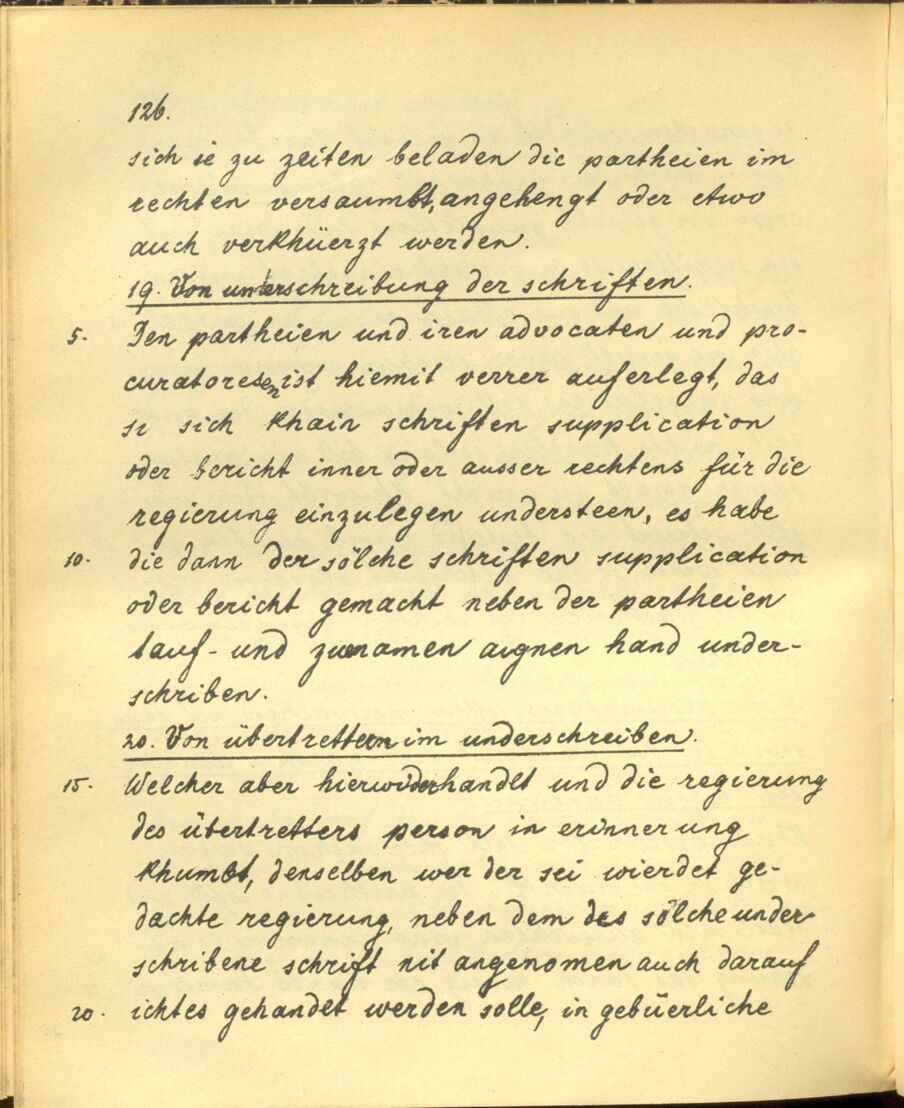 126.
sich ie zu zeiten beladen die partheien im
rechten versaumbt, angehengt oder etwo
auch verkhüerzt werden.
19. Von unterschreibung der schriften.
5. Den partheien und iren advocaten und pro-
curatoresen ist hiemit verrer auferlegt, das
si sich khain schriften supplication
oder bericht inner oder ausser rechtens für die
regierung einzulegen understeen, es habe
10. die dann der sölche schriften supplication
oder bericht gemacht neben der partheien
tauf- und zuenamen aignen hand under-
schriben.
20. Von übertrettern im underschreiben.
15. Welcher aber hierwider handlt und die regierung
des übertretters person in erinnerung
khumbt, denselben wer der sei wierdet ge-
dachte regierung, neben dem das sölche under-
schribene schrift nit angenomen auch darauf
20. ichtes gehandet werden solle, in gebüerliche